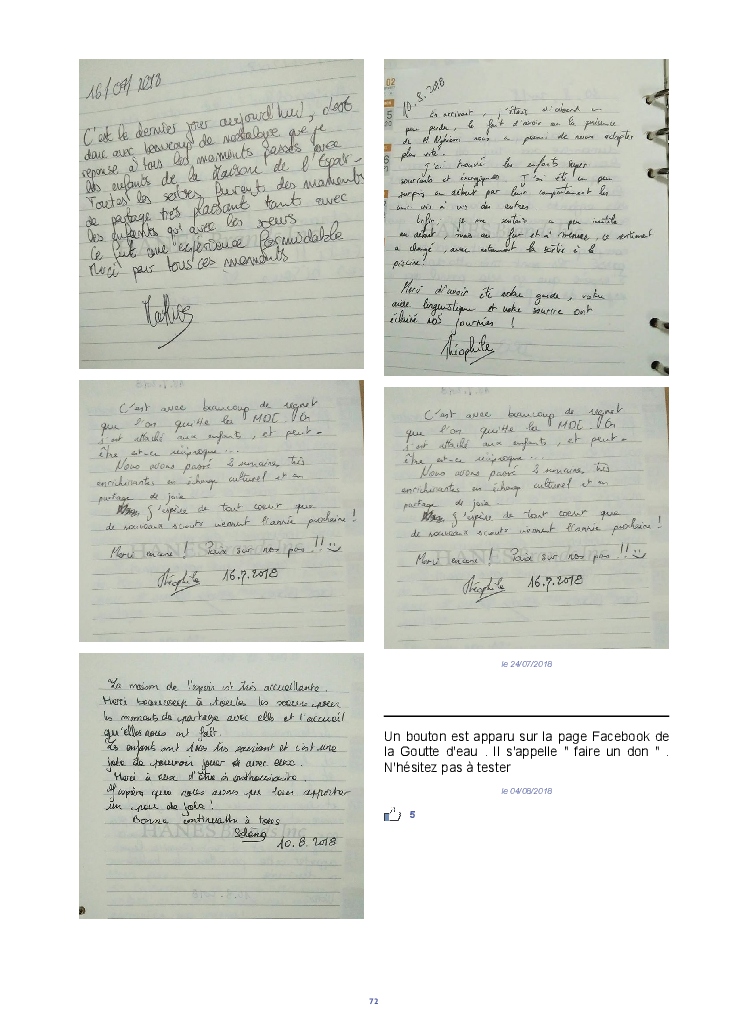 16/07/2018
C'est le dernier jour aujourd'hui, c'est
donc avec beaucoup de nostalgie que je
repense à tous les moments passés avec
les enfants de la Maison de l'Espoir.
Toutes les soirées furent des moments
de partage très plaisant tant avec
les enfants qu'avec les sœurs
Ce fut une expérience formidable
Merci pour tous ces moments
C'est avec beaucoup de regret
que l'on quitte la MDE. On
s'est attaché aux enfants, et peut-
être est-ce réciproque...
Nous avons passé 2 semaines très
enrichissantes en échange culturel et en
partage de joie
J'espère de tout coeur que
de nouveaux scouts viennent l'année prochaine !
Merci encore ! Paix sur nos pas !!
Théophile 16.7.2018
La maison de l'espoir est très accueillante.
Merci beaucoup à toutes les sœurs pour
les moments de partage avec elle et l'accueil
qu'elles nous ont fait.
Les enfants ont tous les souriant et c'est une
joie de pouvoir jouer avec eux.
Merci à eux d'être si enthousiaste.
J'espère que nous avons pu leur apporter
un peu de joie !
Bonne continuation à tous
Solène
10.8.2018
HANES
10.8.2018
En arrivant, j'étais d'abord un
peu perdu, le fait d'avoir eu la présence
de M. nous a permis de nous adapter
plus vite.
J'ai trouvé les enfants hyper
souriants et énergiques J'ai été un peu
surpris au début par leur comportement les
uns vis à vis des autres
Enfin, je me sentais un peu inutile
au début, mais au fur et à mesure, ce sentiment
a changé, avec notamment la sortie à la
piscine.
Merci d'avoir été notre guide, votre
aide linguistique et votre sourire ont
éclairé nos journées !
Théophile
C'est avec beaucoup de regret
que l'on quitte la MDE. On
s'est attaché aux enfants, et peut-
être est-ce réciproque...
Nous avons passé 2 semaines très
enrichissantes en échange culturel et en
partage de joie
J'espère de tout coeur que
de nouveaux scouts viennent l'année prochaine !
Merci encore ! Paix sur nos pas !!
Théophile 16.7.2018
le 24/07/2018
Un bouton est apparu sur la page Facebook de
la Goutte d'eau . Il s'appelle " faire un don " .
N'hésitez pas à tester
le 04/08/2018
5
72